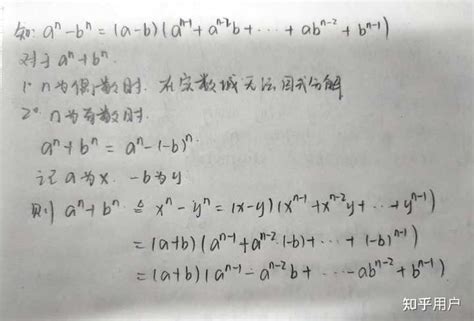 知: aⁿ-bⁿ = (a-b)(aⁿ⁻¹+aⁿ⁻²b+⋯+abⁿ⁻²+bⁿ⁻¹)
对于 aⁿ+bⁿ.
1° n为偶数时. 在实数域无法因式分解
2° n为奇数时.
aⁿ+bⁿ = aⁿ-(-b)ⁿ
记 a为x. -b为y
则 aⁿ+bⁿ ≜ xⁿ-yⁿ = (x-y)(xⁿ⁻¹+xⁿ⁻²y+⋯+yⁿ⁻¹)
= (a+b)(aⁿ⁻¹+aⁿ⁻²·(-b)+⋯+(-b)ⁿ⁻¹)
= (a+b)(aⁿ⁻¹-aⁿ⁻²b+⋯-abⁿ⁻²+bⁿ⁻¹)
知乎用户